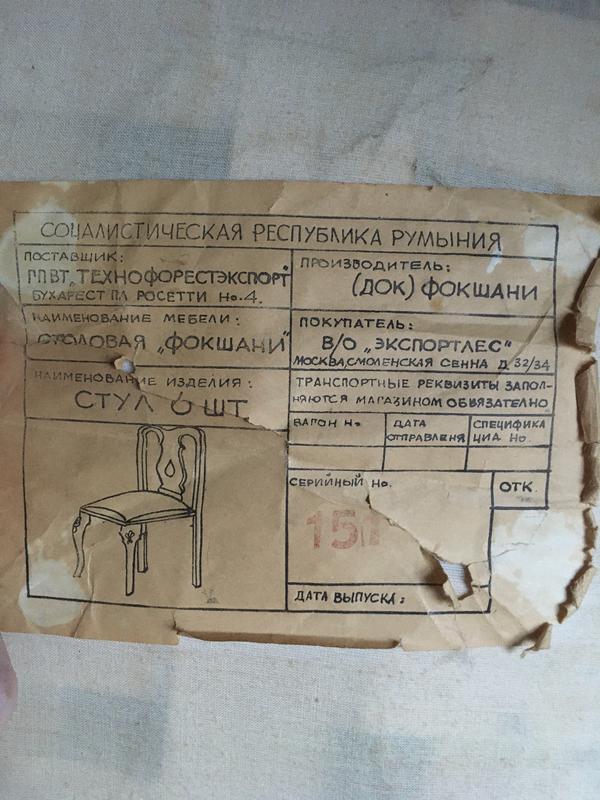 СОЦИАЛИСТИЧЕСКАЯ РЕСПУБЛИКА РУМЫНИЯ
ПОСТАВЩИК:
ГПВТ „ТЕХНОФОРЕСТЭКСПОРТ"
БУХАРЕСТ ПЛ РОСЕТТИ No.4.
НАИМЕНОВАНИЕ МЕБЕЛИ:
СТОЛОВАЯ „ФОКШАНИ"
НАИМЕНОВАНИЕ ИЗДЕЛИЯ:
СТУЛ 6 ШТ
ПРОИЗВОДИТЕЛЬ:
(ДОК) ФОКШАНИ
ПОКУПАТЕЛЬ:
В/О „ЭКСПОРТЛЕС"
МОСКВА, СМОЛЕНСКАЯ СЕННА Д 32/34
ТРАНСПОРТНЫЕ РЕКВИЗИТЫ ЗАПОЛ-
НЯЮТСЯ МАГАЗИНОМ ОБЯЗАТЕЛЬНО
ВАГОН No
ДАТА
ОТПРАВЛЕНЯ
СПЕЦИФИКА
ЦИА No.
СЕРИЙНЫЙ No.
ОТК.
ДАТА ВЫПУСКА: